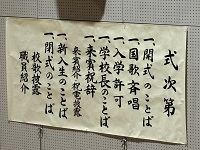 式次第
一、開式のことば
一、国歌斉唱
一、入学許可
一、学校長のことば
一、来賓祝辞
来賓紹介 祝電披露
一、新入生のことば
一、閉式のことば
校歌披露
職員紹介